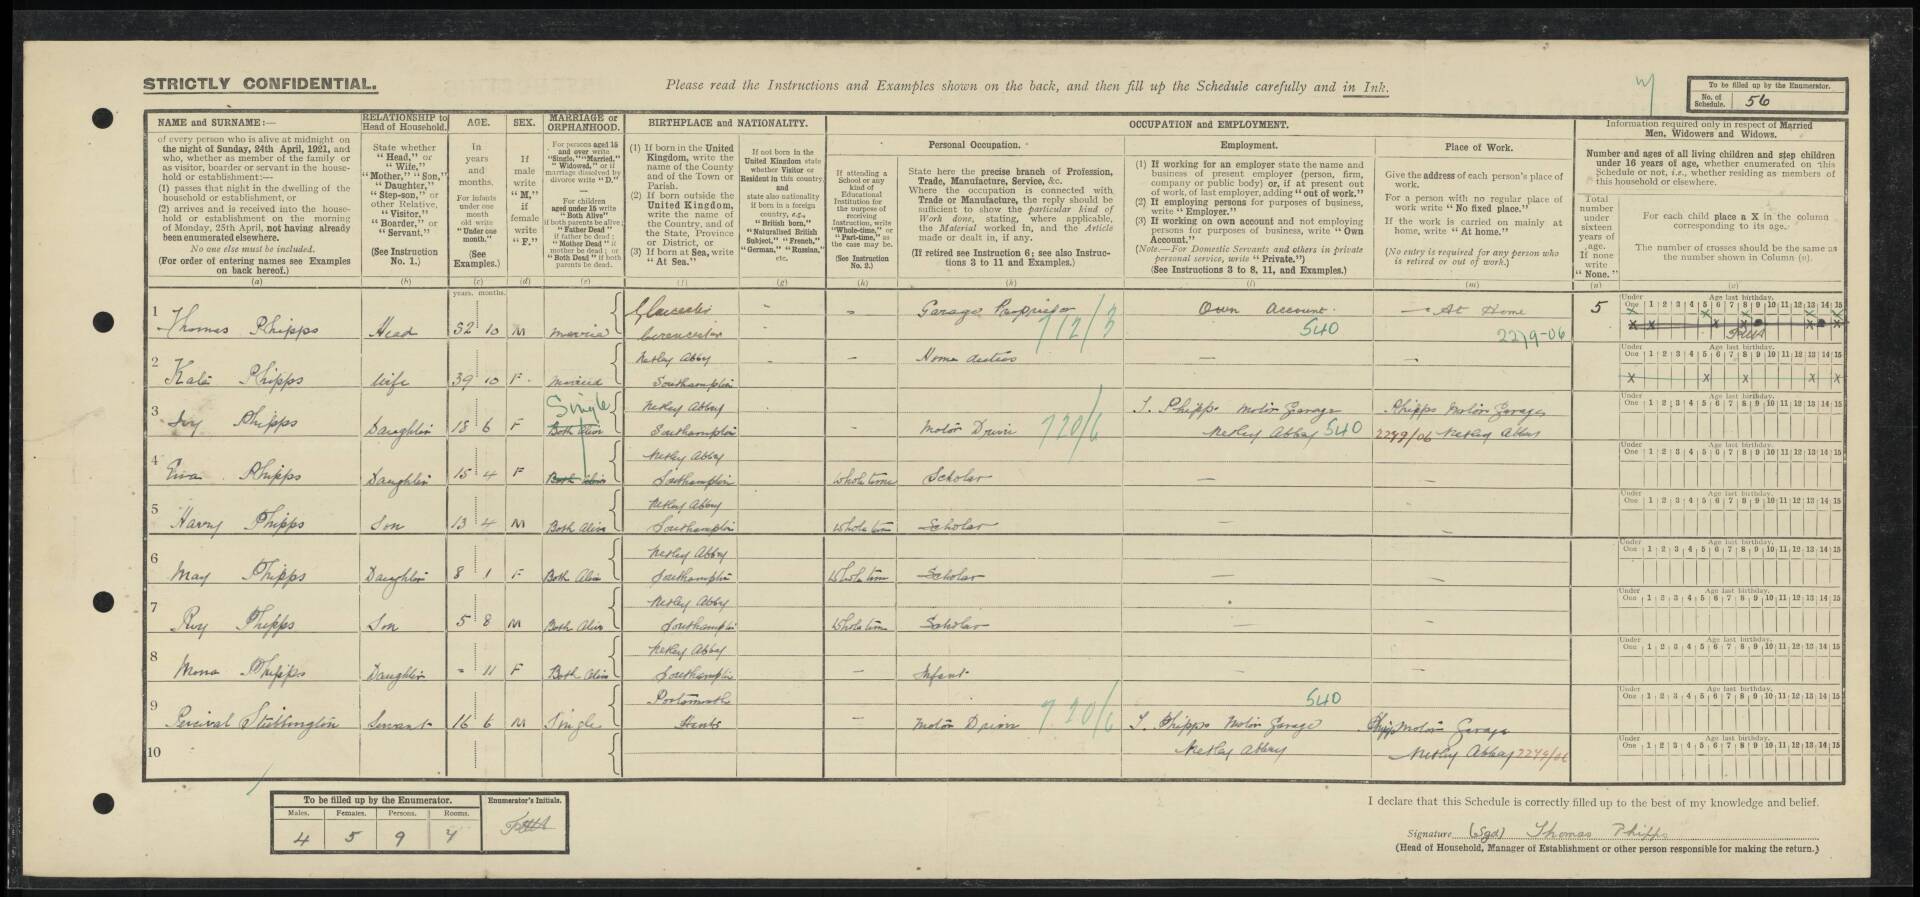 STRICTLY CONFIDENTIAL.
Please read the Instructions and Examples shown on the back, and then fill up the Schedule carefully and in Ink.
To be filled up by the Enumerator.
No. of Schedule. 56
NAME and SURNAME:—
of every person who is alive at midnight on
the night of Sunday, 24th April, 1921, and
who, whether as member of the family or
as visitor, boarder or servant in the house-
hold or establishment:—
(1) passes that night in the dwelling of the
household or establishment, or
(2) arrives and is received into the house-
hold or establishment on the morning
of Monday, 25th April, not having already
been enumerated elsewhere.
No one else must be included.
(For order of entering names see Examples
on back hereof.)
(a)
RELATIONSHIP to
Head of Household.
State whether
"Head," or
"Wife,"
"Mother," "Son,"
"Daughter,"
"Step-son," or
other Relative,
"Visitor,"
"Boarder," or
"Servant."
(See Instruction
No. 1.)
(b)
AGE.
In
years
and
months.
For infants
under one
month
old write
"Under one
month."
(See
Examples.)
(c)
years. months.
SEX.
If
male
write
"M,"
if
female
write
"F."
(d)
MARRIAGE or
ORPHANHOOD.
For persons aged 15
and over write
"Single," "Married,"
"Widowed," or if
marriage dissolved by
divorce write "D."
For children
aged under 15 write
"Both Alive"
if both parents be alive;
"Father Dead"
if father be dead;
"Mother Dead" if
mother be dead; or
"Both Dead" if both
parents be dead.
(e)
BIRTHPLACE and NATIONALITY.
(1) If born in the United
Kingdom, write the
name of the County
and of the Town or
Parish.
(2) If born outside the
United Kingdom,
write the name of
the Country, and of
the State, Province
or District, or
(3) If born at Sea, write
"At Sea."
(f)
If not born in the
United Kingdom state
whether Visitor or
Resident in this country,
and
state also nationality
if born in a foreign
country, e.g.,
"British born,"
"Naturalised British
Subject," "French,"
"German," "Russian,"
etc.
(g)
OCCUPATION and EMPLOYMENT.
Personal Occupation.
If attending a
School or any
kind of
Educational
Institution for
the purpose of
receiving
Instruction, write
"Whole-time," or
"Part-time," as
the case may be.
(See Instruction
No. 2.)
(h)
State here the precise branch of Profession,
Trade, Manufacture, Service, &c.
Where the occupation is connected with
Trade or Manufacture, the reply should be
sufficient to show the particular kind of
Work done, stating, where applicable,
the Material worked in, and the Article
made or dealt in, if any.
(If retired see Instruction 6; see also Instruc-
tions 3 to 11 and Examples.)
(k)
Employment.
(1) If working for an employer state the name and
business of present employer (person, firm,
company or public body) or, if at present out
of work, of last employer, adding "out of work."
(2) If employing persons for purposes of business,
write "Employer."
(3) If working on own account and not employing
persons for purposes of business, write "Own
Account."
(Note.—For Domestic Servants and others in private
personal service, write "Private.")
(See Instructions 3 to 8, 11, and Examples.)
(l)
Place of Work.
Give the address of each person's place of
work.
For a person with no regular place of
work write "No fixed place."
If the work is carried on mainly at
home, write "At home."
(No entry is required for any person who
is retired or out of work.)
(m)
Information required only in respect of Married
Men, Widowers and Widows.
Number and ages of all living children and step children
under 16 years of age, whether enumerated on this
Schedule or not, i.e., whether residing as members of
this household or elsewhere.
Total
number
under
sixteen
years of
age.
If none
write
"None."
(n)
For each child place a X in the column
corresponding to its age.
The number of crosses should be the same as
the number shown in Column (n).
(o)
Under One 1 2 3 4 5 6 7 8 9 10 11 12 13 14 15
Age last birthday.
1 Thomas Phipps Head 52 10 M Gloucester Cirencester - - Garage Proprietor 712/3 Own Account 540 At Home 2279-06 5
2 Kate Phipps Wife 39 10 F Netley Abbey Southampton - Home duties — —
3 Ivy Phipps Daughter 18 6 F Single Both Alive Netley Abbey Southampton - Motor Driver 720/6 T. Phipps Motor Garage Netley Abbey 540 Phipps Motor Garage Netley Abbey 2279/06
4 Phipps Daughter 15 4 F Both Alive Netley Abbey Southampton Whole time Scholar — —
5 Harry Phipps Son 13 4 M Both Alive Netley Abbey Southampton Whole time Scholar — —
6 May Phipps Daughter 8 1 F Both Alive Netley Abbey Southampton Whole time Scholar — —
7 Roy Phipps Son 5 8 M Both Alive Netley Abbey Southampton Whole time Scholar — —
8 Mona Phipps Daughter - 11 F Both Alive Netley Abbey Southampton — Infant — —
9 Percival Stubbington Servant 16 6 M Single Portsmouth Hants — Motor Driver 720/6 T. Phipps Motor Garage Netley Abbey 540 Phipps Motor Garage Netley Abbey 2279/06
10
To be filled up by the Enumerator.
Males. Females. Persons. Rooms.
4 5 9 7
Enumerator's Initials.
I declare that this Schedule is correctly filled up to the best of my knowledge and belief.
Signature (Sgd) Thomas Phipps
(Head of Household, Manager of Establishment or other person responsible for making the return.)